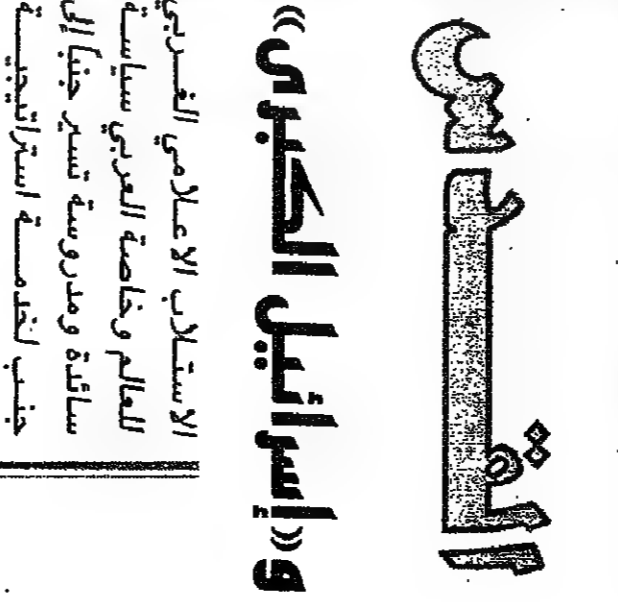 و«إسرائيل الكبرى»
الاستلاب الاعلامي الغربي
للعالم وخاصة العربي سياسة
سائدة ومدروسة تسير جنباً إلى
جنب لخدمة استراتيجية